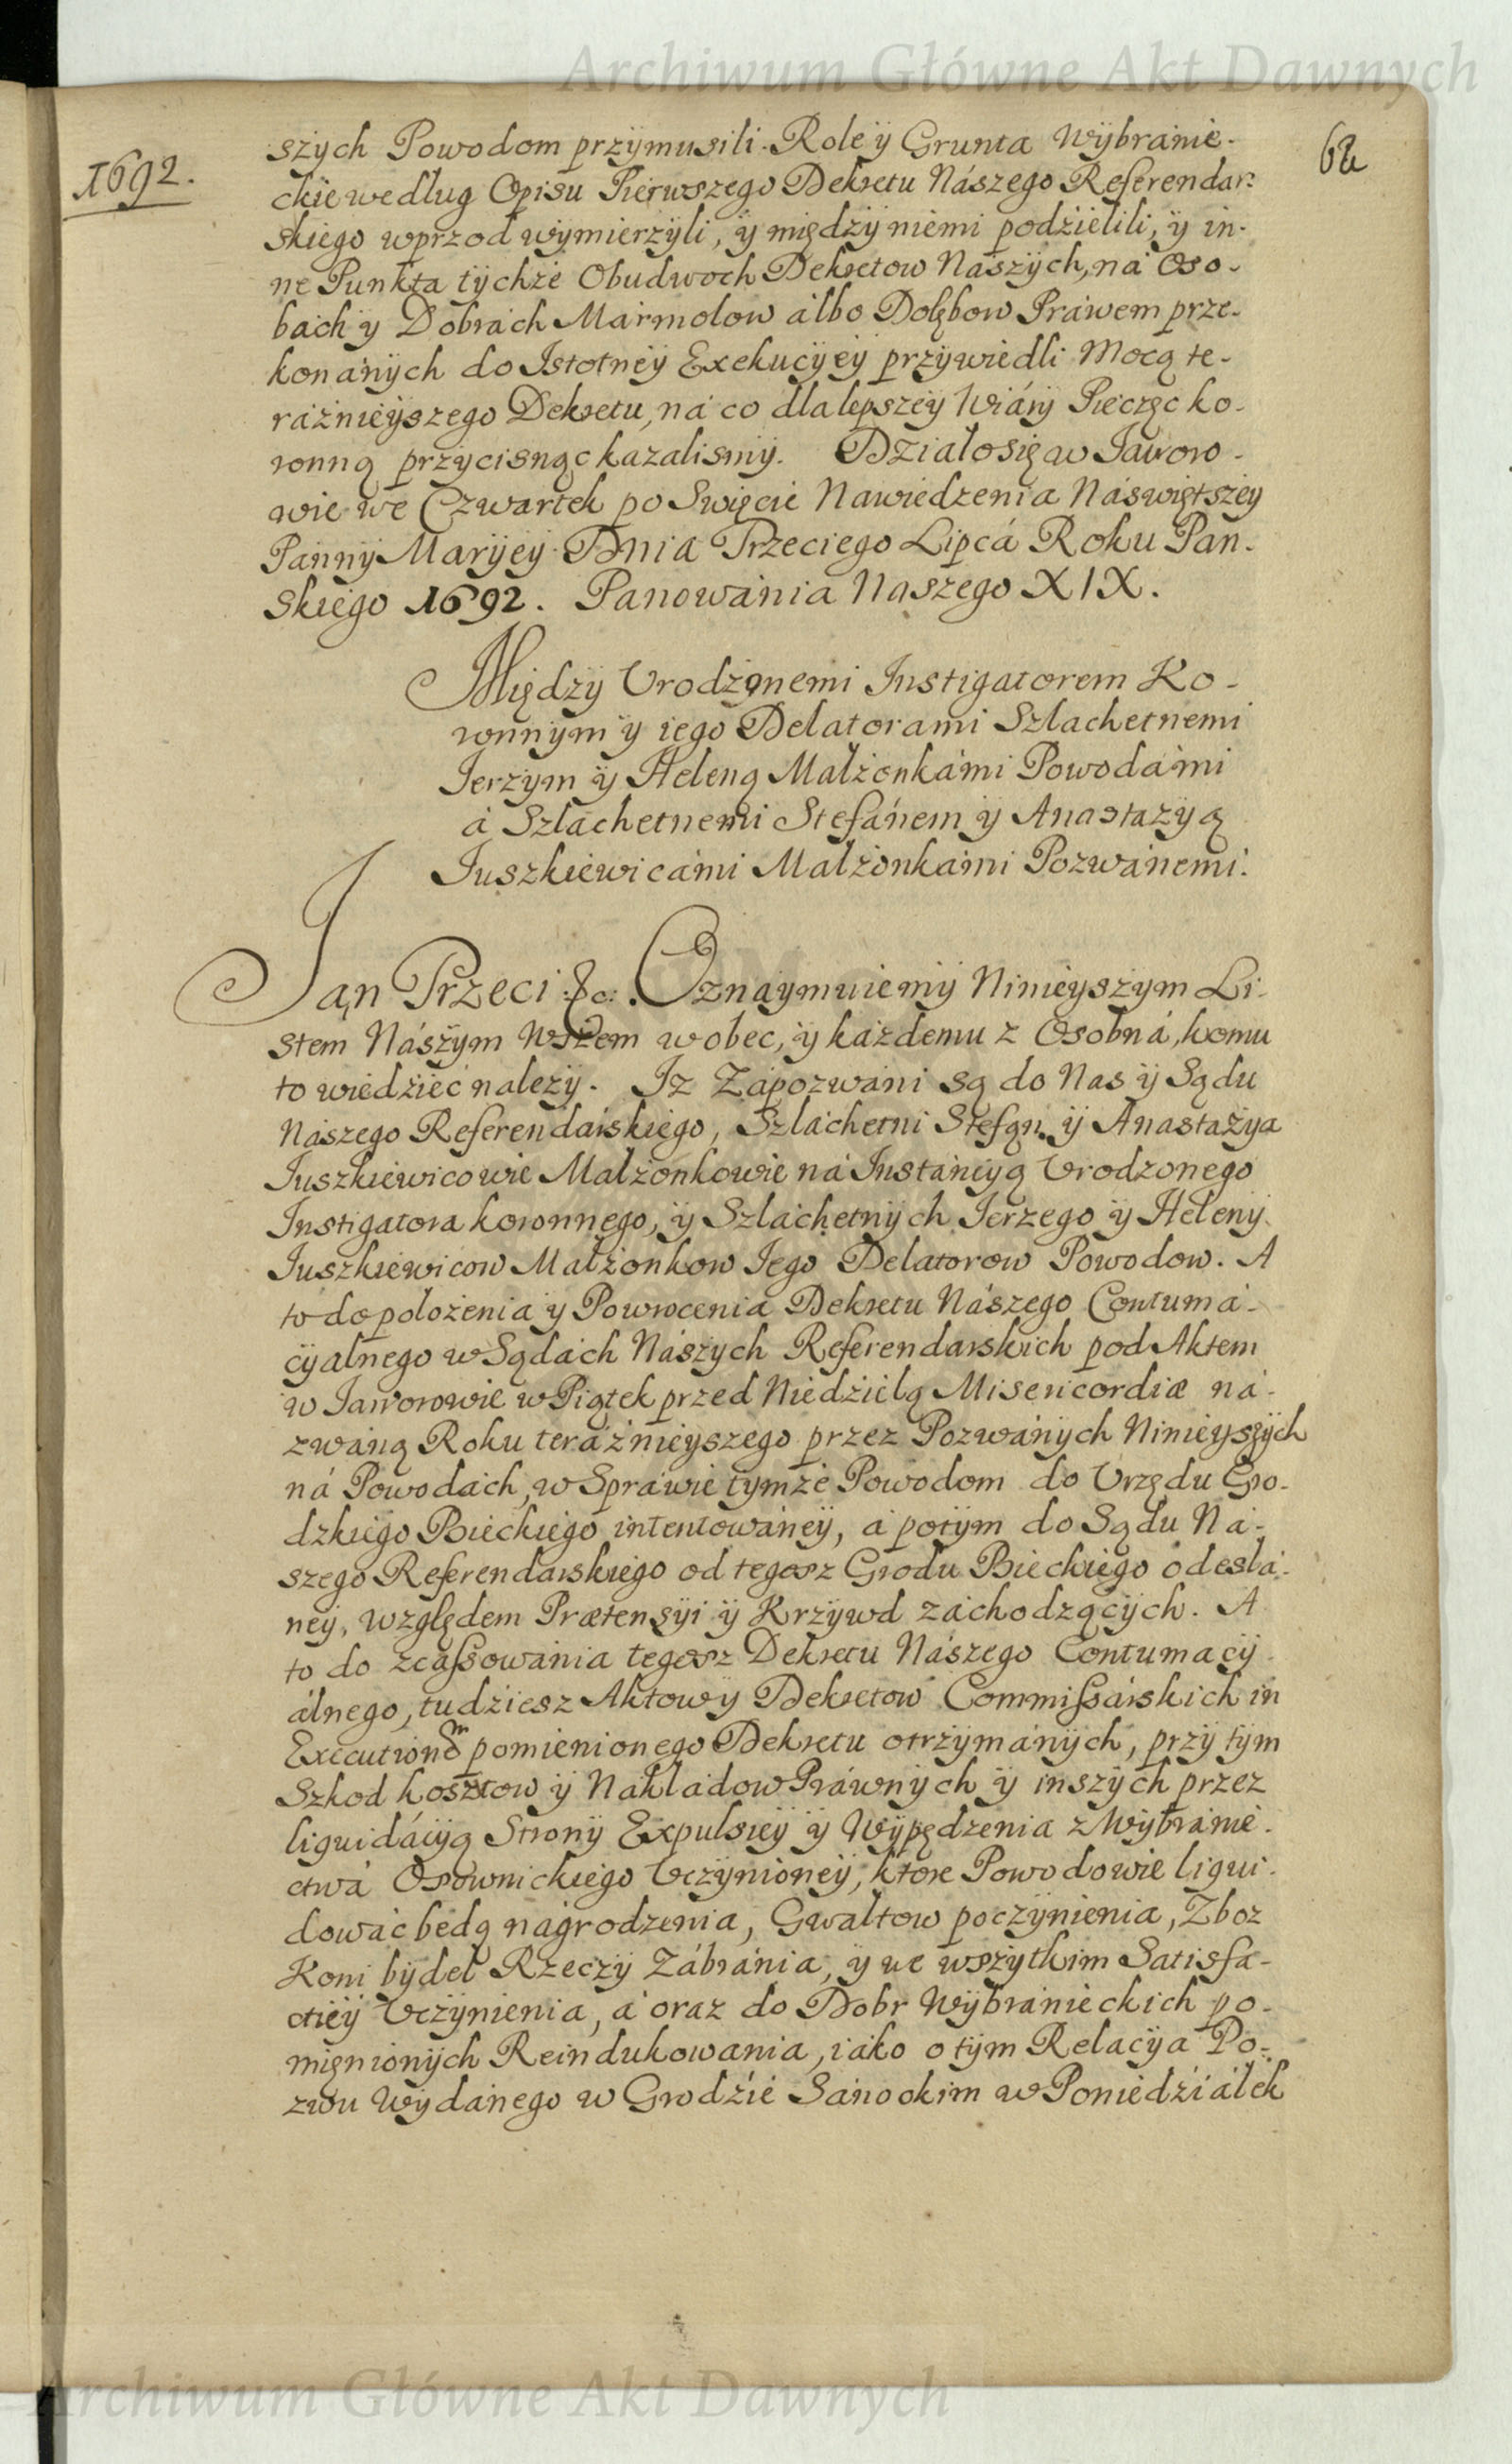 Archiwum Główne Akt Dawnych
1692.
62
szÿch Powodom przÿmusili. Role ÿ Grunta Wÿbranie-
ckie według Opisu Pierwszego Dekretu Nászego Referendar:
skiego wprzod wÿmierzÿli, ÿ międzÿ niemi podzielili, ÿ in-
ne Punkta tÿchże Obudwoch Dekretow Naszÿch, ná Oso-
bách ÿ Dobrách Mármołow álbo Dołębow Prawem prze-
konánÿch do Istotneÿ Exekucÿeÿ przÿwiedli Mocą te-
ráżnieÿszego Dekretu, ná co dla lepszeÿ Wiárÿ Pieczęc ko-
ronną przÿcisnąc kazalismÿ. Działo się w Iaworo-
wie we Czwartek po Swięcie Nawiedzenia Náswiętszeÿ
Pannÿ Marÿeÿ Dnia Trzeciego Lipcá Roku Pan-
skiego 1692. Panowánia Naszego XIX.
Międzÿ Urodzonemi Instigatorem Ko-
ronnÿm ÿ iego Delatorami Szlachetnemi
Ierzÿm ÿ Heleną Małżonkámi Powodámi
á Szlachetnemi Stefánem ÿ Anastazÿą
Iuszkiewicámi Małżonkámi Pozwánemi.
Ian Trzeci &c. Oznaÿmuiemÿ Ninieÿszÿm Li-
stem Nászÿm Wszem wobec, ÿ każdemu z Osobná, komu
to wiedziec należÿ. Iz Zápozwáni są do Nas ÿ Sądu
Nászego Referendárskiego, Szláchetni Stefan ÿ Anastazÿa
Iuszkiewicowie Małżonkowie ná Instáncÿą Urodzonego
Instigatora koronnego, ÿ Szláchetnÿch Ierzego ÿ Helenÿ
Iuszkiewicow Małżonkow Iego Delatorow Powodow. A
to do położenia ÿ Powrocenia Dekretu Nászego Contumá-
cÿalnego w Sądách Nászÿch Referendarskich pod Aktem
w Iaworowie w Piątek przed Niedzielą Misericordiæ ná-
zwáną Roku teráżnieÿszego przez Pozwánÿch Ninieÿszÿch
ná Powodách, w Spráwie tÿmże Powodom do Urzędu Gro-
dzkiego Bieckiego intentowáneÿ, á potÿm do Sądu Ná-
szego Referendarskiego od tegosz Grodu Bieckiego odesłá-
neÿ, względem Prætensÿi ÿ Krzÿwd záchodzącÿch. A
to do zcassowánia tegosz Dekretu Nászego Contumacÿ
álnego, tudziesz Aktow ÿ Dekretow Commissárskich in
Executionem pomienionego Dekretu otrzÿmánÿch, przÿ tÿm
Szkod kosztow ÿ Nakładow Práwnÿch ÿ inszÿch przez
liquidácÿą Stronÿ Expulsieÿ ÿ Wÿpędzenia z Wÿbránie-
ctwá Osownickiego Uczÿnioneÿ, ktore Powodowie liqui-
dowác będą nágrodzenia, Gwałtow poczÿnienia, Zboz
Koni bÿdeł Rzeczÿ Zábránia, ÿ we wszÿtkim Satisfa-
ctieÿ Uczÿnienia, á oraz do Dobr Wÿbránieckich po-
mięnionÿch Reindukowania, iáko o tÿm Relacÿa Po-
zwu Wÿdánego w Grodzie Sánockim w Poniedziáłek
Archiwum Główne Akt Dawnych